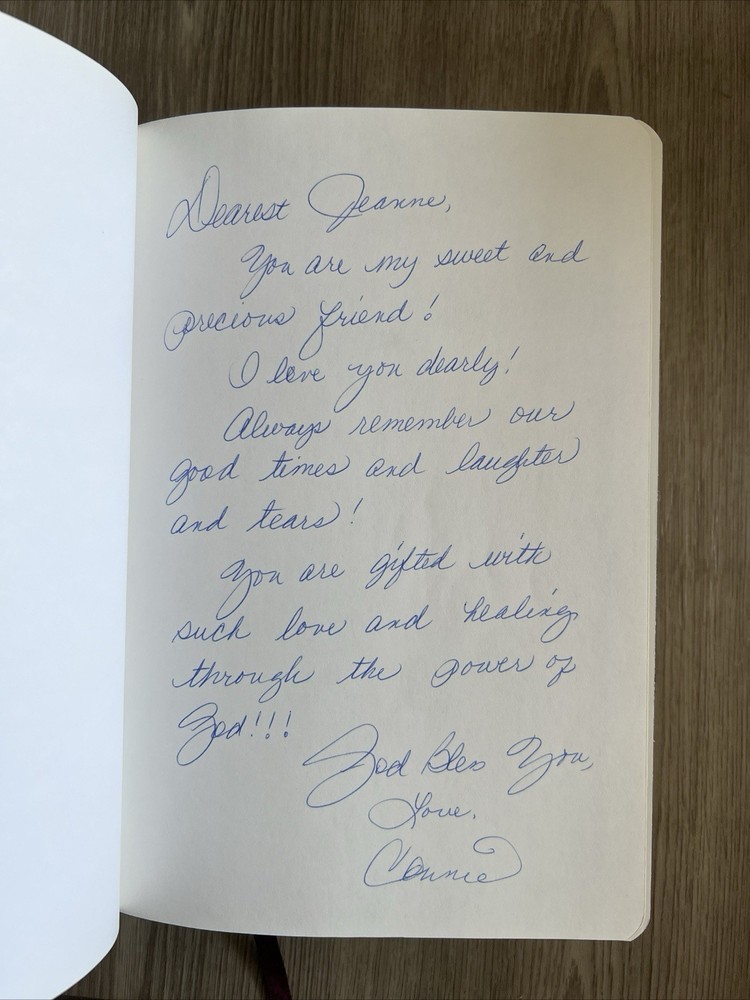 Dearest Jeanne,
You are my sweet and
precious friend!
I love you dearly!
Always remember our
good times and laughter
and tears!
You are gifted with
such love and healing
through the power of
God!!!
God Bless You,
Love,
Connie